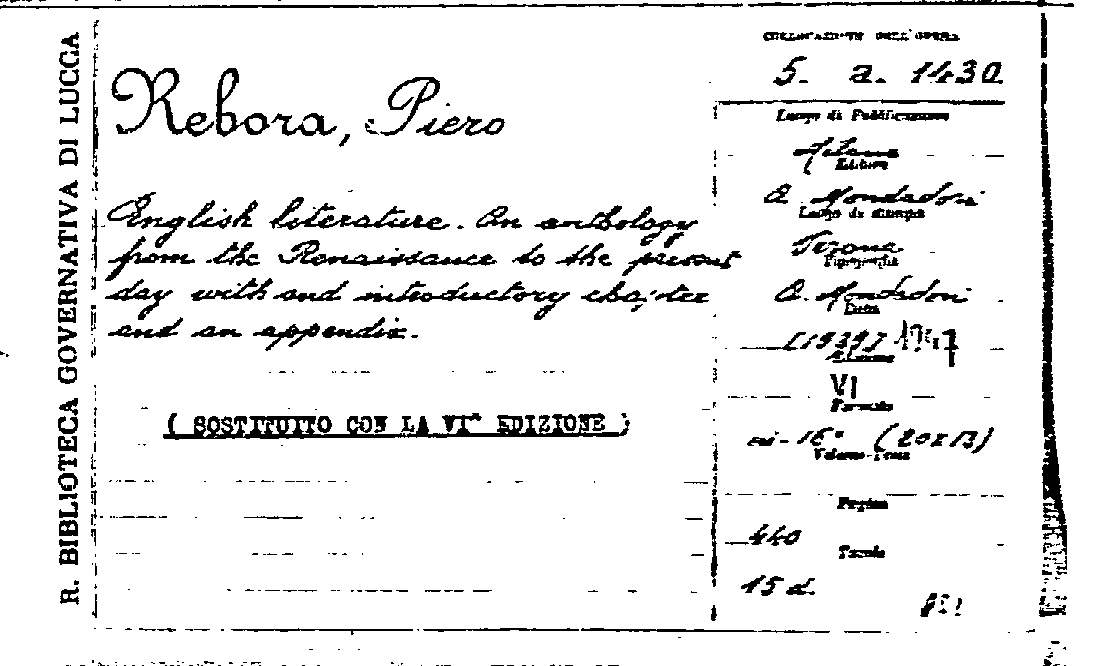 R. BIBLIOTECA GOVERNATIVA DI LUCCA
Rebora, Piero
English literature. An anthology
from the Renaissance to the present
day with and introductory chapter
and an appendix.
( SOSTITUITO CON LA VIª EDIZIONE )
COLLOCAZIONE DELL'OPERA
5. a. 1430
Luogo di Pubblicazione
Milano
Editore
A. Mondadori
Luogo di stampa
Verona
Tipografia
A. Mondadori
Data
[1939] 1947
Edizione
VI
Formato
in-16° (20x13)
Volume-Tomo
Pagine
440
Tavole
15 d.